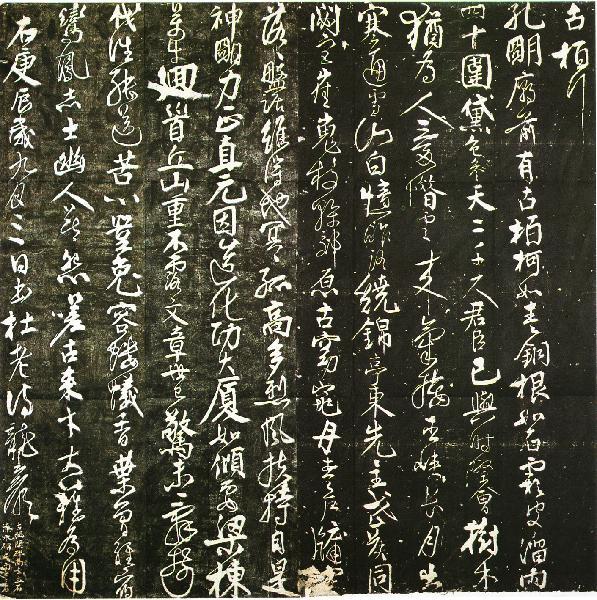 古柏行
孔明廟前有古柏柯如青銅根如石霜皮溜雨
四十圍黛色參天二千尺君臣已與時際會樹木
猶為人愛惜雲來氣接巫峽長月出
寒通雪山白憶昨路繞錦亭東先主武侯同
閟宮崔嵬枝幹郊原古窈窕丹青戶牖
落落盤踞雖得地冥冥孤高多烈風扶持自是
神明力正直元因造化功大廈如傾要梁棟
萬牛迴首丘山重不露文章世已驚未辭翦
伐誰能送苦心豈免容螻蟻香葉曾經宿
鸞鳳志士幽人莫怨嗟古來材大難為用
右庚辰歲九月三日書杜老詩龍巖